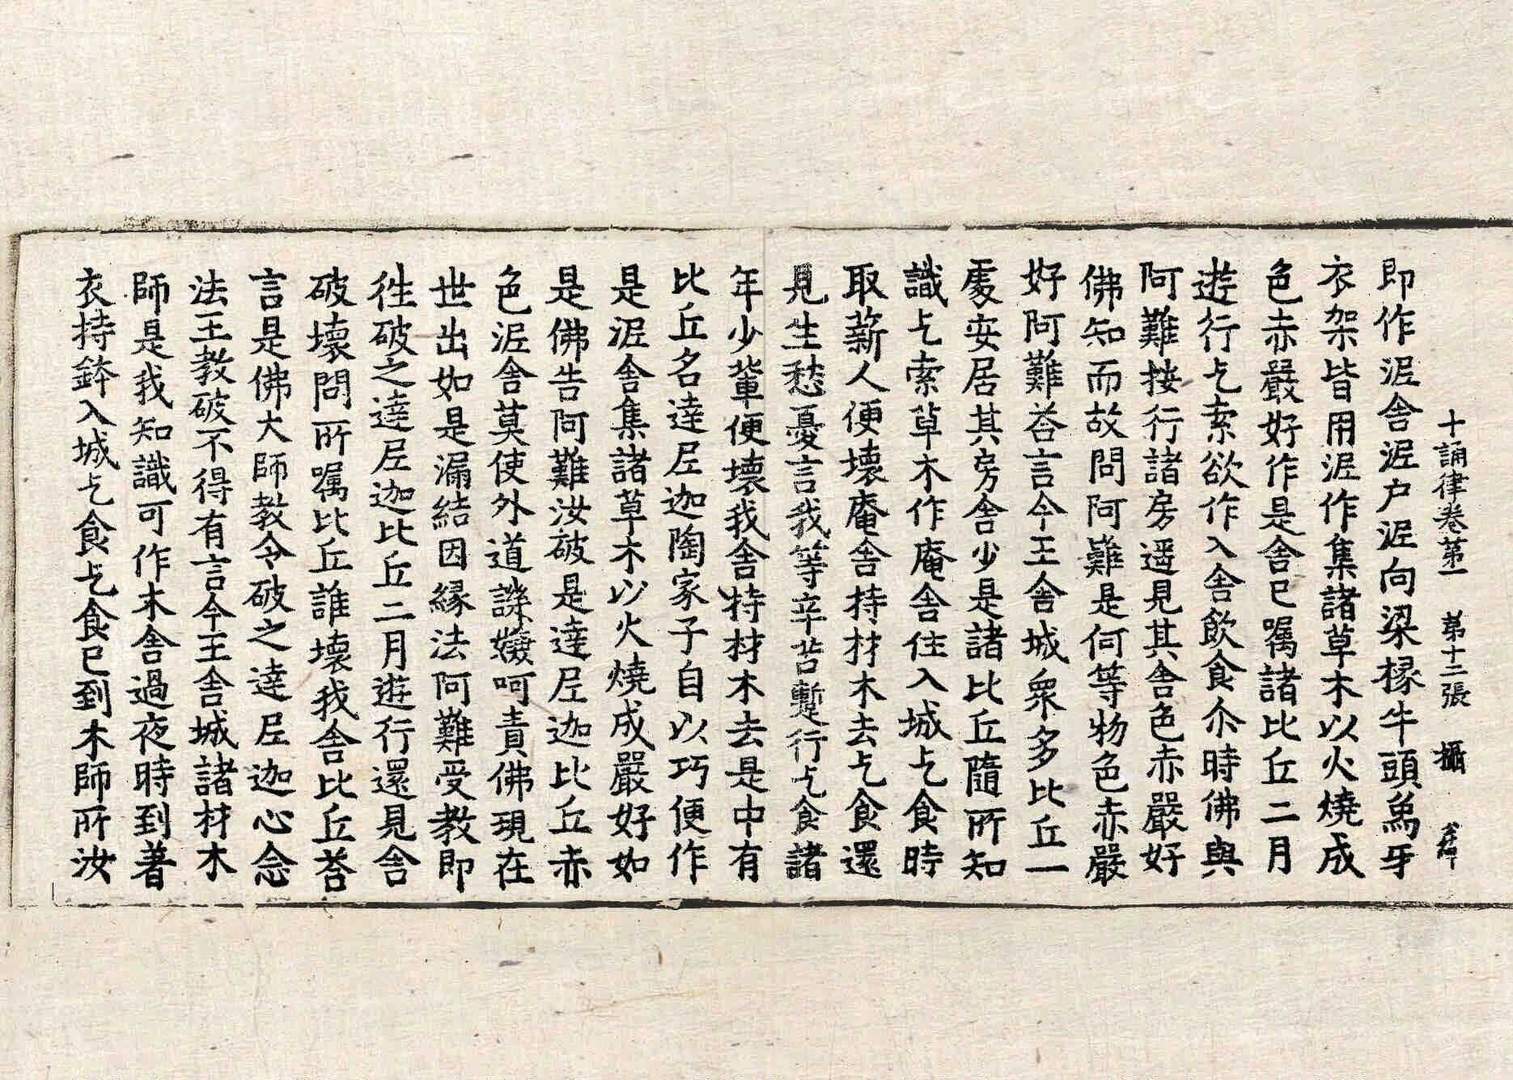 十誦律卷第一　第十二張　攝
即作泥舍泥户泥向梁椽牛頭象牙
衣架皆用泥作集諸草木以火燒成
色赤嚴好作是舍已囑諸比丘二月
遊行乞索欲作入舍飲食尒時佛與
阿難按行諸房遥見其舍色赤嚴好
佛知而故問阿難是何等物色赤嚴
好阿難荅言今王舍城衆多比丘一
處安居其房舍少是諸比丘隨所知
識乞索草木作庵舍住入城乞食時
取薪人便壞庵舍持材木去乞食還
見生愁憂言我等辛苦蹔行乞食諸
年少輩便壞我舍持材木去是中有
比丘名達尼迦陶家子自以巧便作
是泥舍集諸草木以火燒成嚴好如
是佛告阿難汝破是達尼迦比丘赤
色泥舍莫使外道譏嫌呵責佛現在
世出如是漏結因縁法阿難受教即
徃破之達尼迦比丘二月遊行還見舍
破壞問所囑比丘誰壞我舍比丘荅
言是佛大師教令破之達尼迦心念
法王教破不得有言今王舍城諸材木
師是我知識可作木舍過夜時到著
衣持鉢入城乞食乞食已到木師所汝